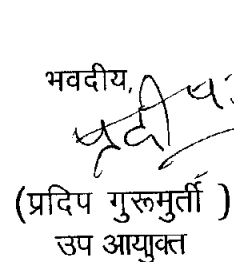 भवदीय,
(प्रदिप गुरूमुर्ती )
उप आयुक्त